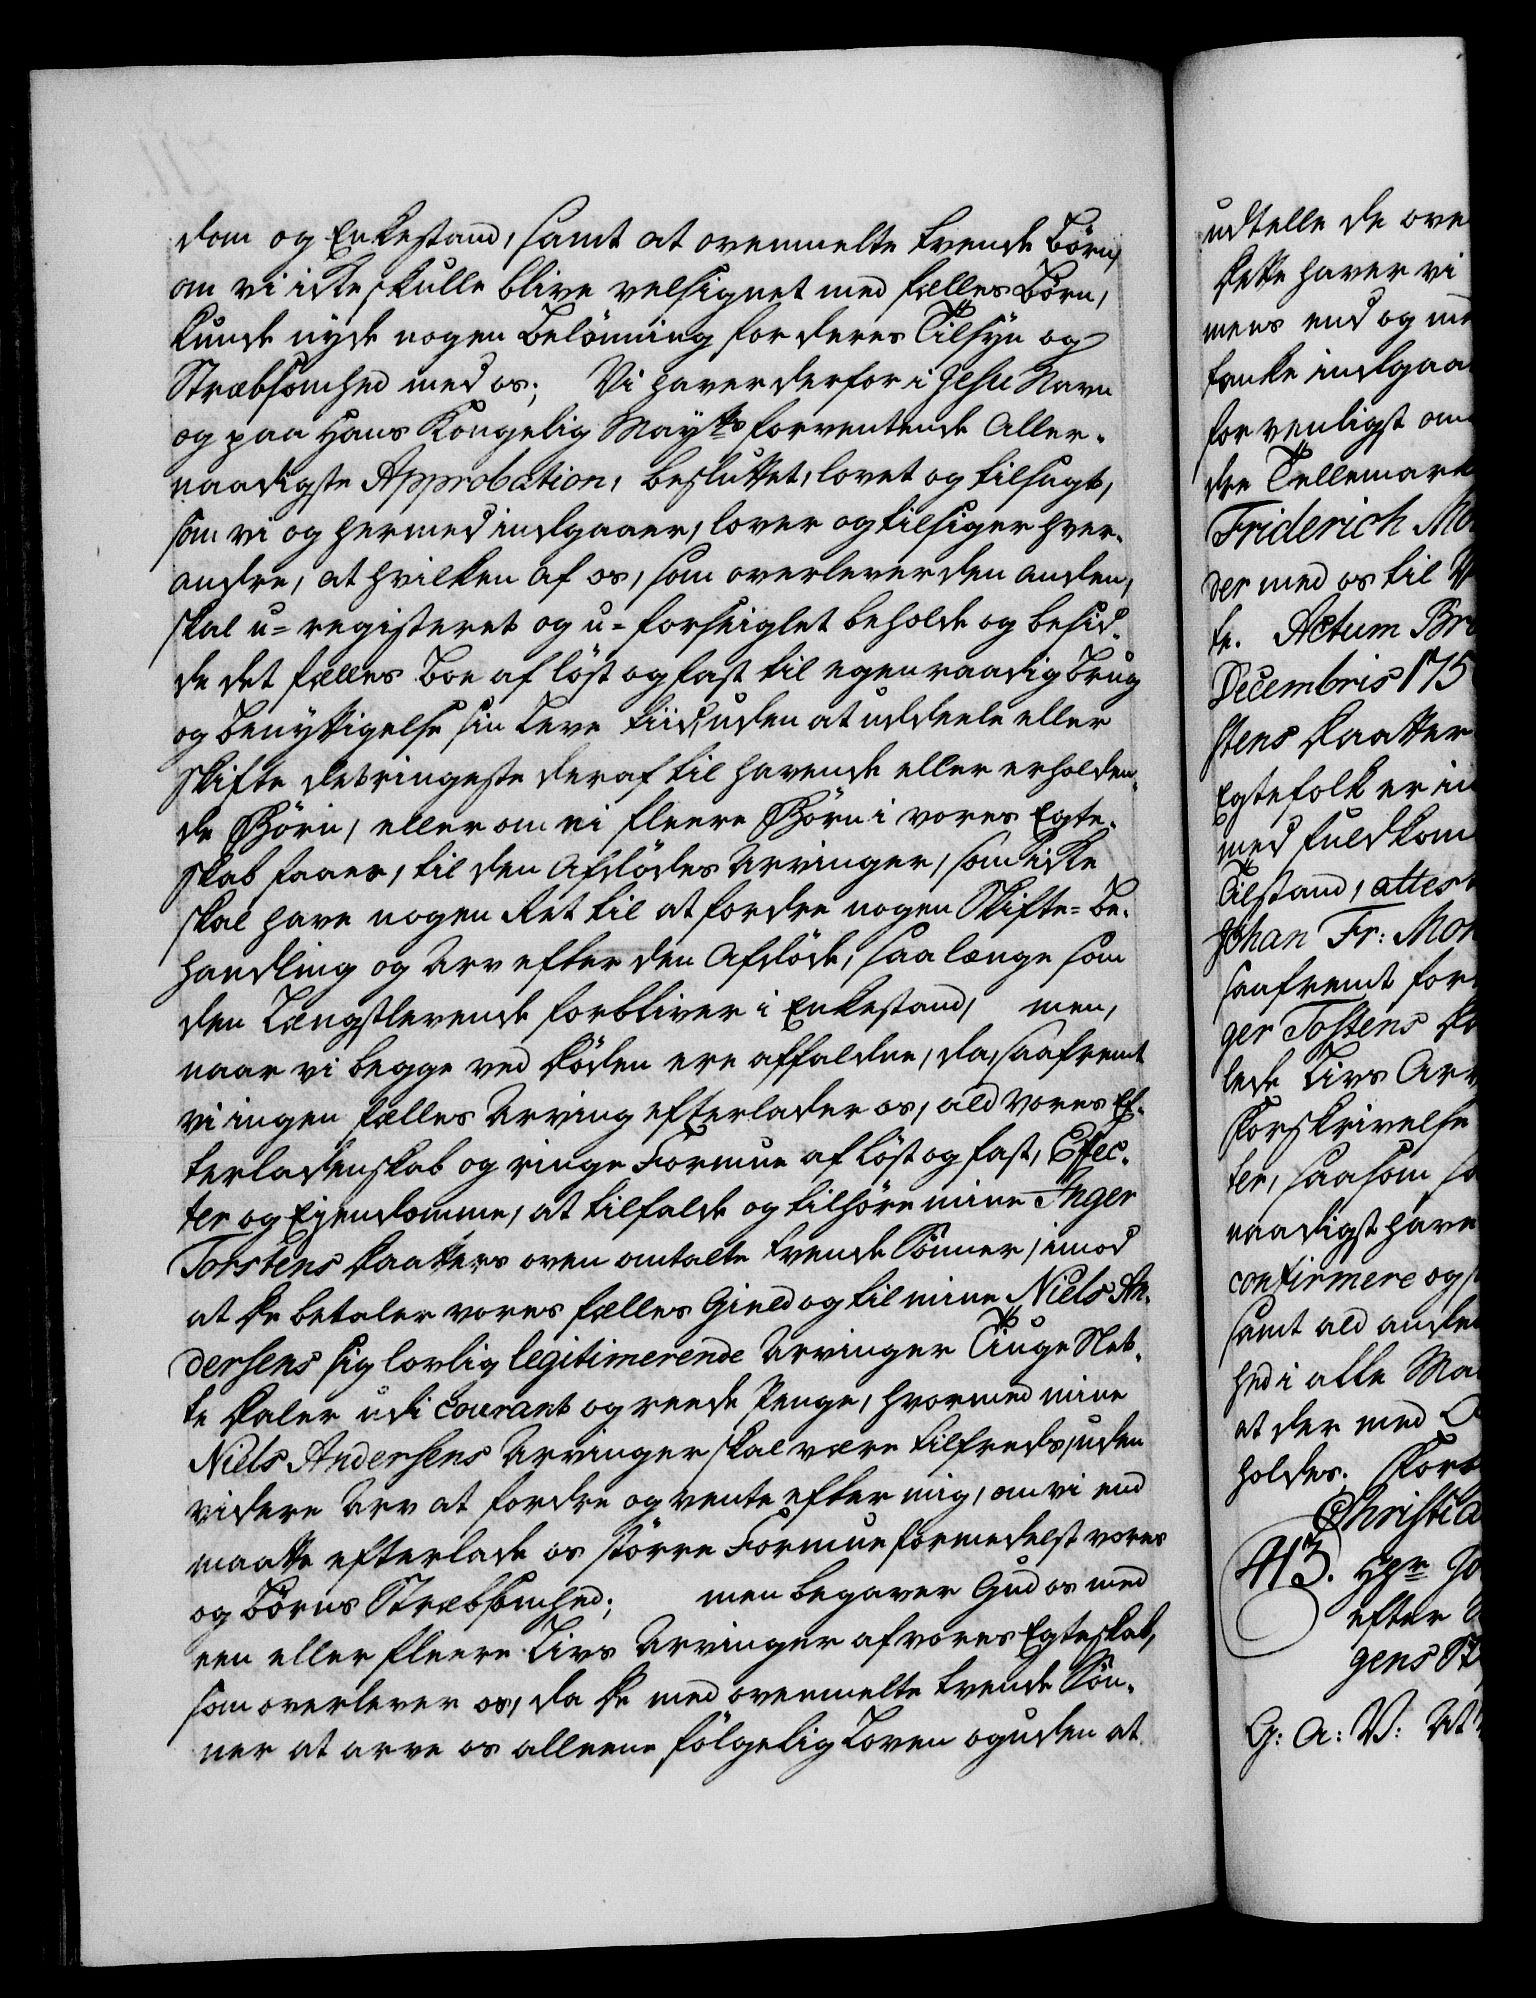 dom og Enkestand, samt at ovenmelte tvende Börn,
om vi icke skulle blive velsignet med fælles Börn,
kunde nyde nogen Belönning for deres Tilsyn og
Stræbsomhed med os; Vi haver derfor i Jesu Navn
og paa Hans Kongelig Mayts forventende Aller-
naadigste Approbation, besluttet, lovet og tilsagt,
som vi og hermed indgaaer, lover og tilsiger hver-
andre, at hvilken af os, som overlever den anden,
skal u-registeret og u-forseiglet beholde og besid-
de det fælles Boe af löst og fast til egenraadig Brug
og Benyttigelse sin Leve Tiid, uden at uddeele eller
skifte det ringeste deraf til havende eller erholden-
de Börn, eller om vi fleere Börn i vores Egte-
skab faaer, til den Afdödes Arvinger, som icke
skal have nogen Ret til at fordre nogen Skifte-Be-
handling og Arv efter den Afdöde, saa længe som
den Længstlevende forbliver i Enkestand, men,
naar vi begge ved Döden ere affaldne, da, saafremt
vi ingen fælles Arving efterlader os, ald vores Ef-
terladenskab og ringe Formue af löst og fast, Effec-
ter og Ejendomme, at tilfalde og tilhöre mine Inger
Torstens Daatters oven omtalte tvende Sönner, imod
at de betaler vores fælles Gield og til mine Niels An-
dersens sig lovlig legitimerende Arvinger Tiuge Slet-
te Daler udi Courant og reede Penge, hvormed mine
Niels Andersens Arvinger skal være tilfreds, uden
videre Arv at fordre og vente efter mig, om vi end
maatte efterlade os större Formue formedelst vores
og Börns Stræbsomhed; men begaver Gud os med
een eller fleere Livs Arvinger af vores Egteskab,
som overlever os, da de med ovenmelte tvende Sön-
ner at arve os alleene fölgelig Loven og uden at
udtelle de ove
Dette haver vi
mens end og me
tanke indgaa
for venligst om
dre Tellemark
Friderich Mo
der med os til V
te. Actum Br
Decembris 175
stens Daatter
Egtefolk er in
med fuldkom
Tilstand, attes
Johan Fr: Mon
saafremt for
ger Tostens Da
lede Livs Arv
Forskrivelse
ter, saasom sa
naadigst have
confirmere og s
samt ald anden
hed i alle Maa
at der med
holdes. Fort
Christia
413. Hr Jo
efter
gens St
G: A: V: At